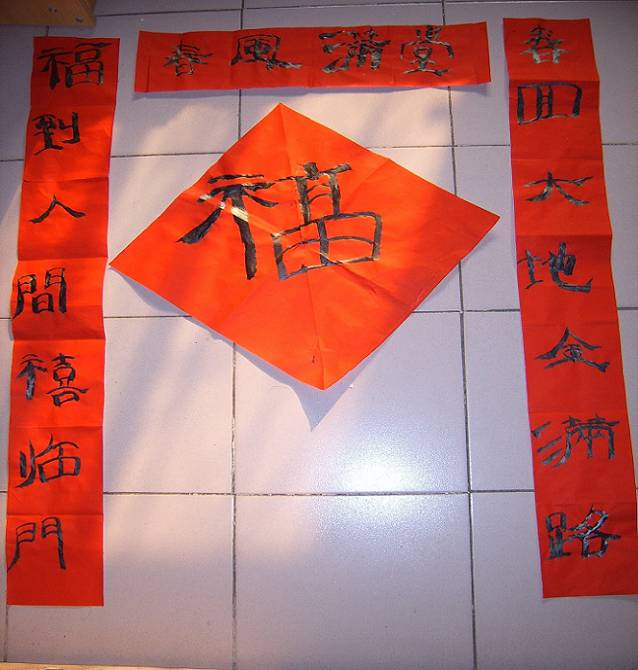 春風滿堂
春回大地金滿路
福到人間禧临門
福